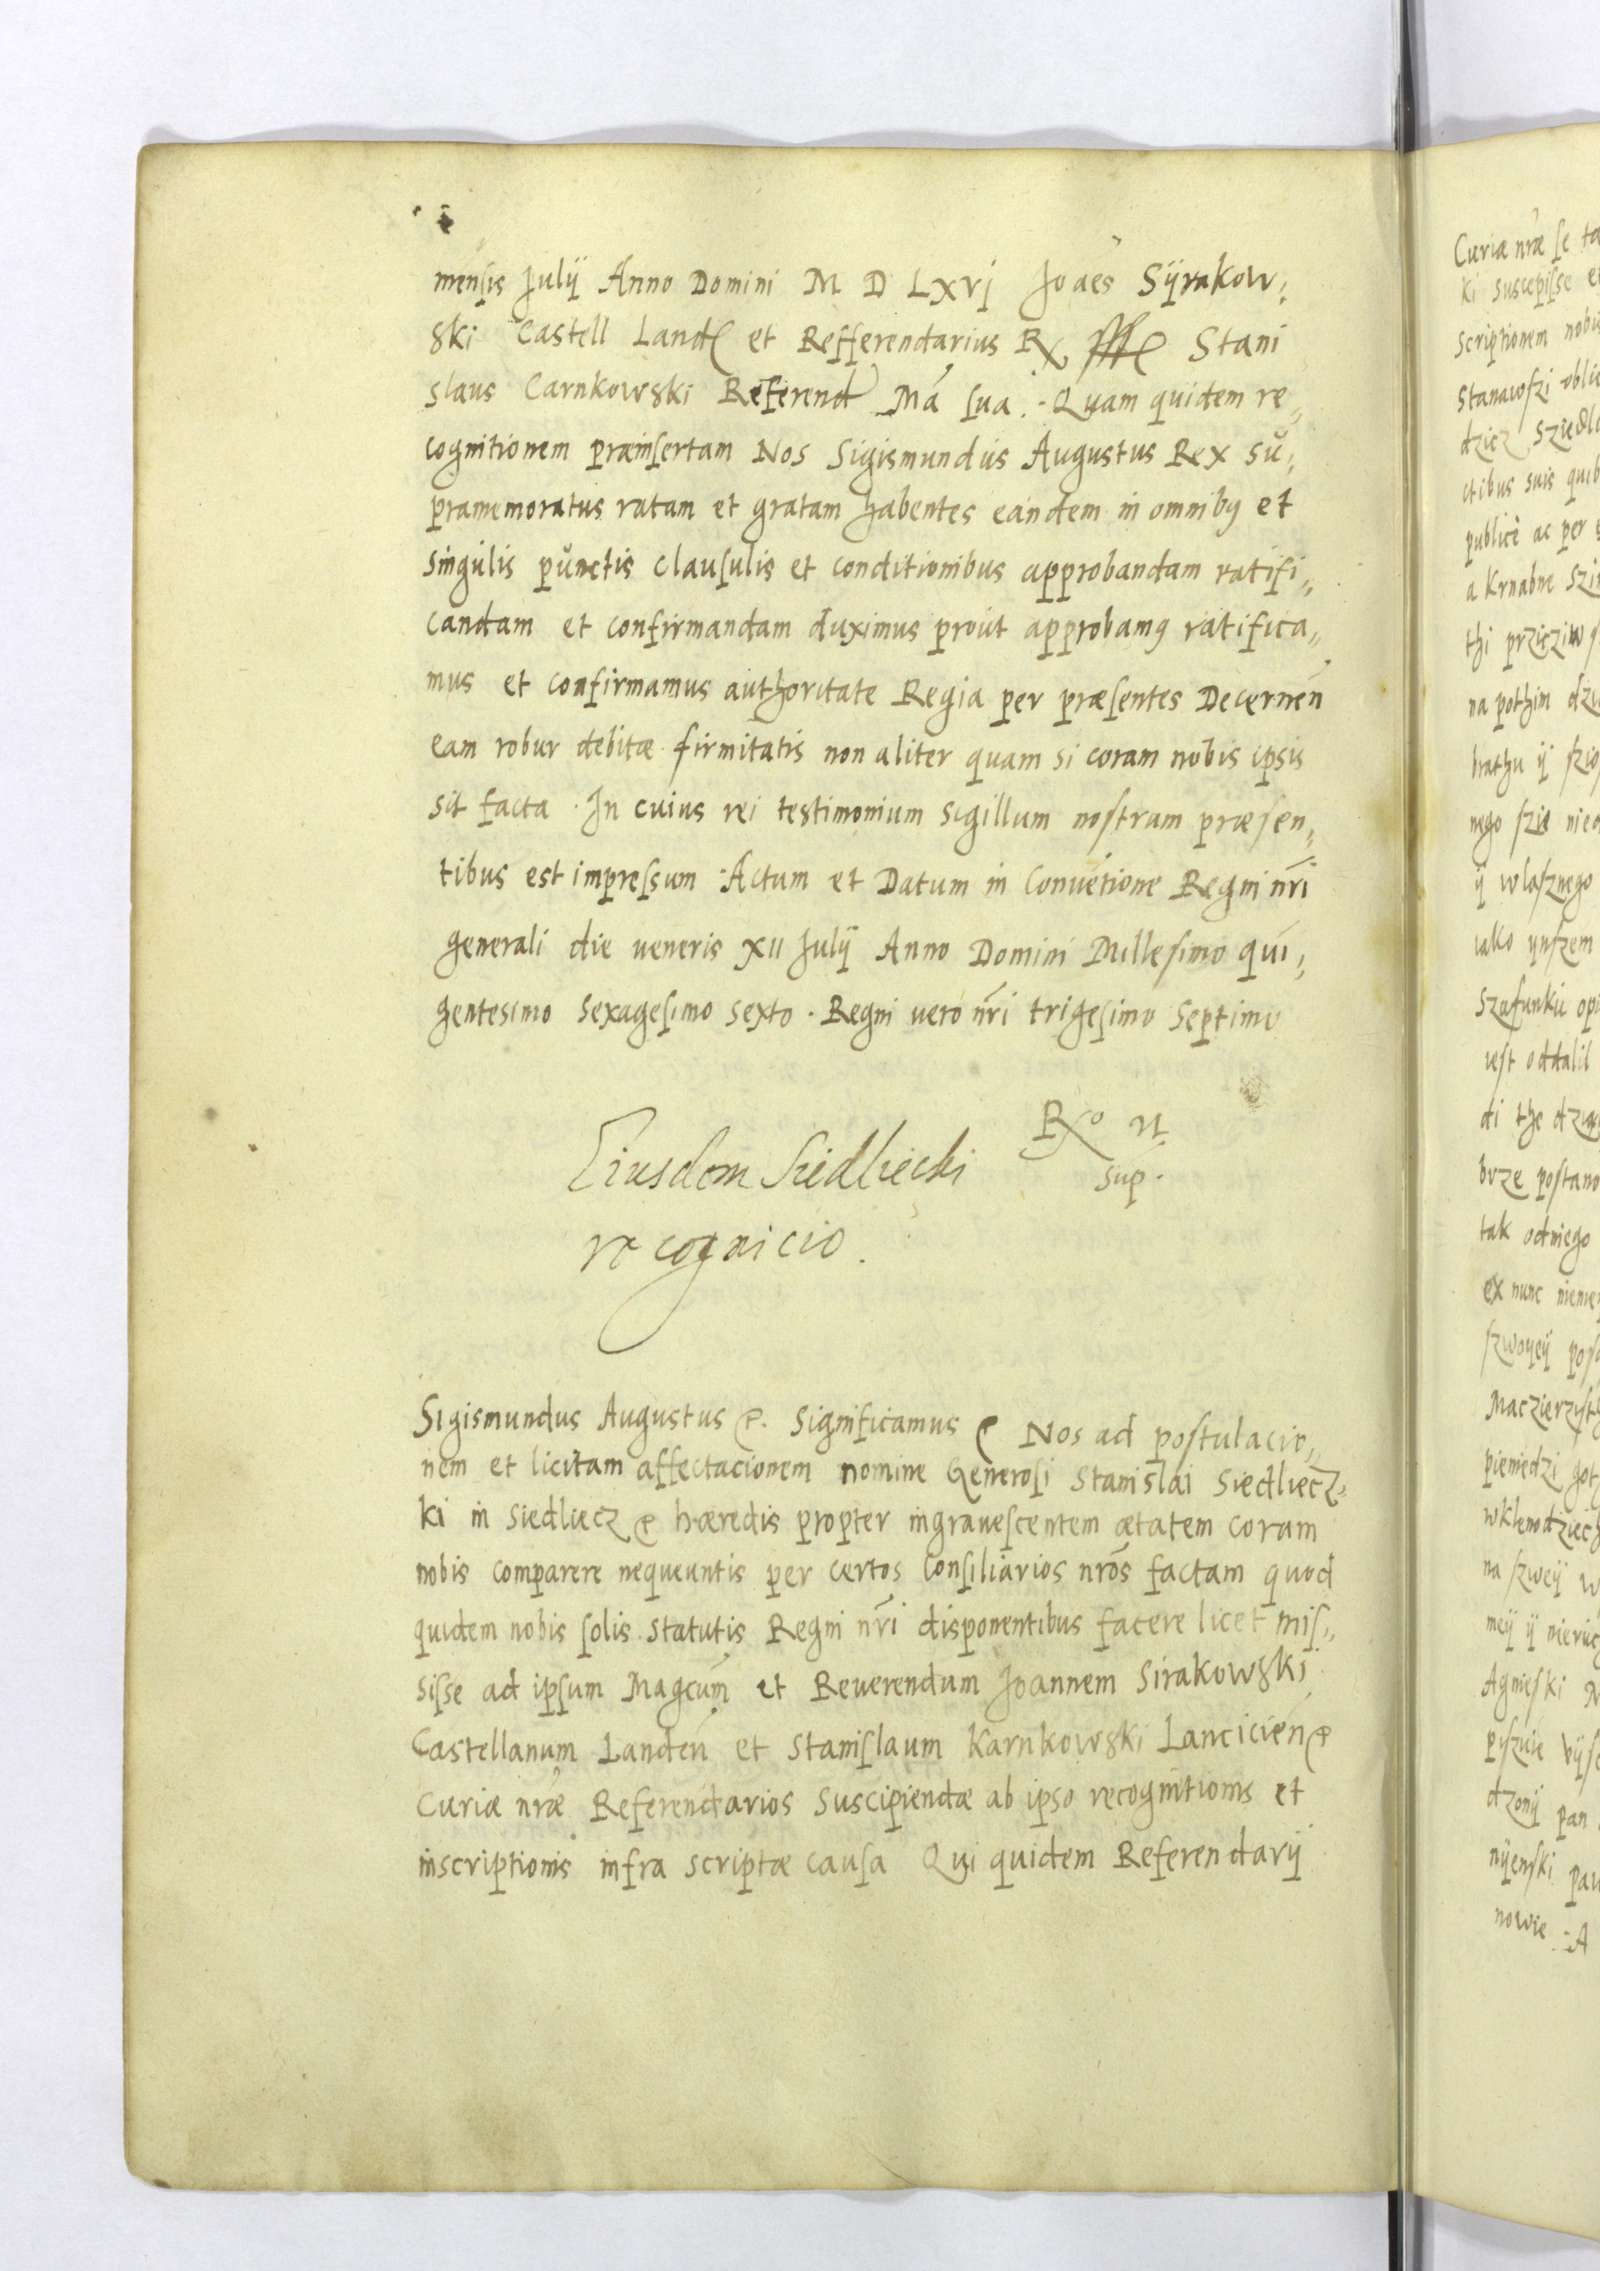 mensis Julij Anno Domini M D LXVj Joães Sÿrakow⸗
ski Castell Land et Refferendarius R sssst Stani
slaus Carnkowski Referend Mã sua. Quam quidem re⸗
cognitionem præinsertam Nos Sigismundus Augustus Rex sŭ⸗
pramemoratus ratam et gratam habentes eandem in omnibꝰ et
singŭlis pŭnctis clausulis et conditionibus approbandam ratifi⸗
candam et confirmandam duximus proŭt approbamꝰ ratifica⸗
mus et confirmamus authoritate Regia per præsentes Decernen̄
eam robur debitæ firmitatis non aliter quam si coram nobis ipsis
sit facta. In cuius rei testimonium sigillum nostrum præsen⸗
tibus est impressum. Actum et Datum in Convētione Regni nr̄i
generali die veneris XII Julij Anno Domini Millesimo quī⸗
gentesimo Sexagesimo sexto. Regni vero nr̄i trigesimo Septimo
Eiusdem Siedliecki
Rº ut
sup.
recognicio.
Sigismundus Augustus &. Significamus & Nos ad postulacio⸗
nem et licitam affectacionem nomine Generosi Stanislai Siedliecz⸗
ki in Siedliecz & hæredis propter ingravescentem ætatem coram
nobis comparere nequeuntis per certos Consiliarios nr̄os factam quod
quidem nobis solis statutis Regni nr̄i disponentibus facere licet mis⸗
sisse ad ipsum Magcum̄ et Reverendum Joannem Sirakowski
Castellanum Landen̄ et Stanislaum Karnkowski Lancicien̄ &
Curiæ nr̄æ Referendarios Suscipiendæ ab ipso recognitionis et
inscriptionis infra scriptæ causa Qui quidem Referendarij
Curiæ nr̄æ se
ki suscepisse
scriptionem
ctibus suis
publicè ac per
a Krnabne
thi
na pothim
brathu ij
nego
ij wlasznego
iako ynszem
iest oddalil
di the
brze
tak odniego
ex nunc
szwoyeÿ
pieniedzi
na szweÿ
meÿ ij
Agnieski
pan
nowie :A